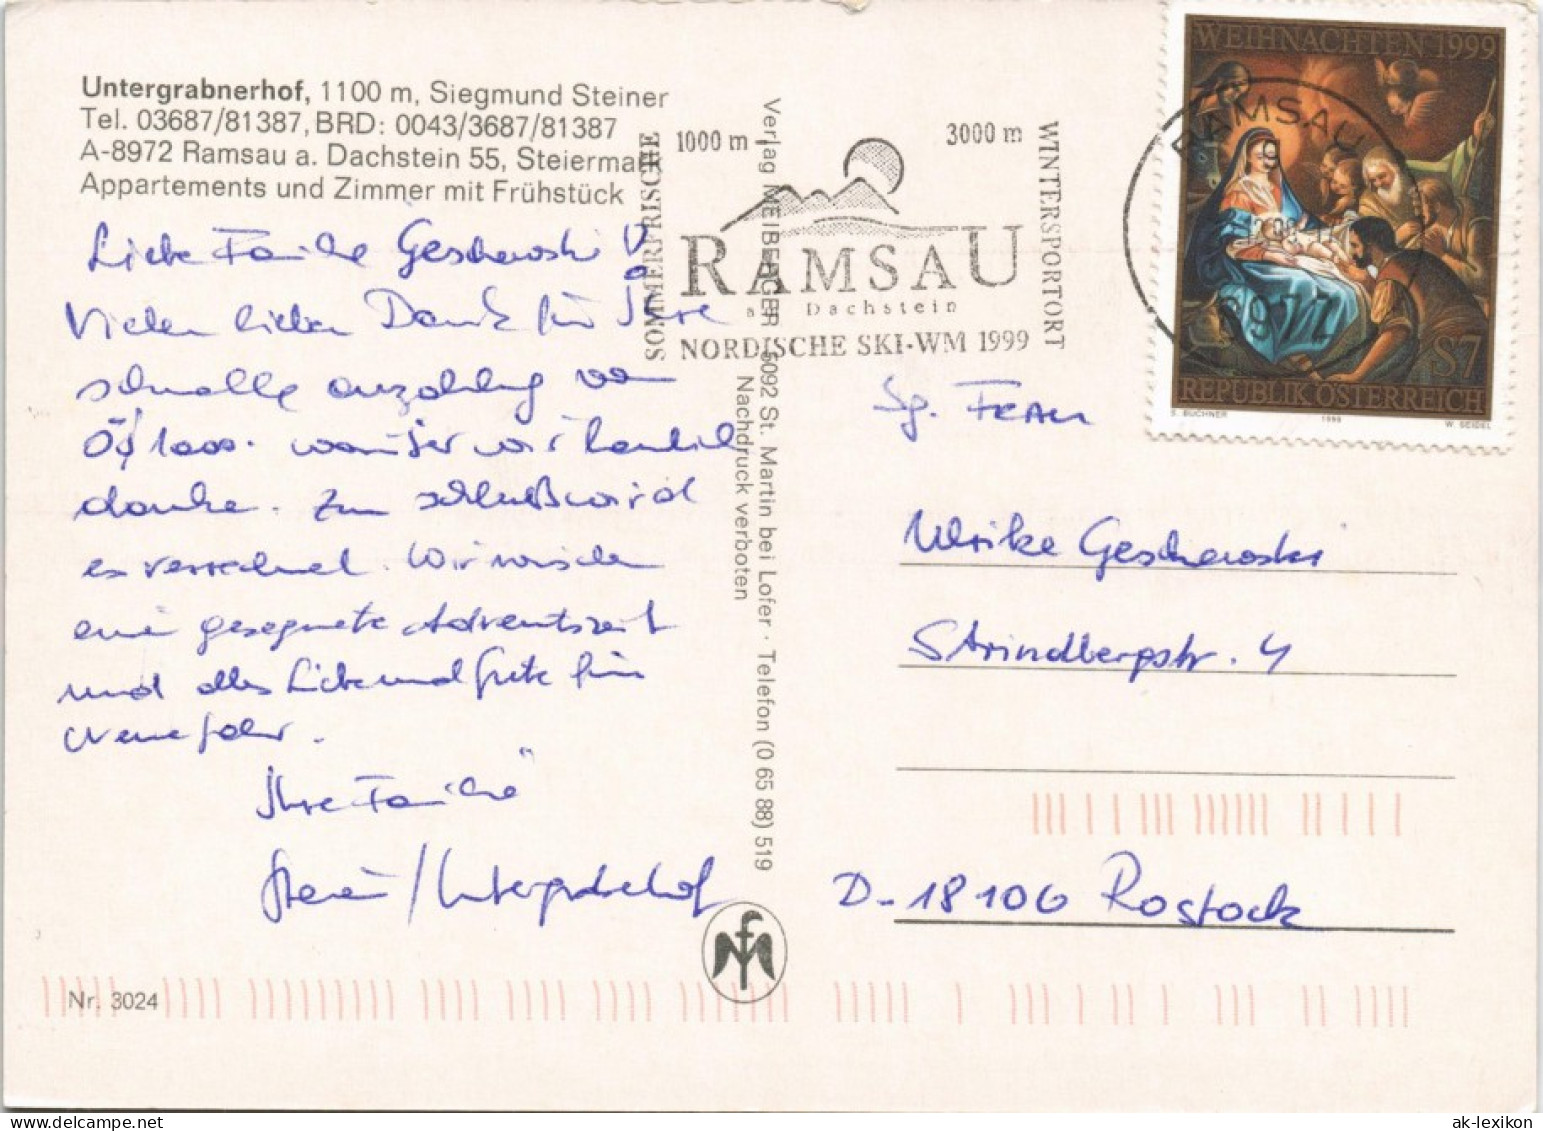 Untergrabnerhof, 1100 m, Siegmund Steiner
Tel. 03687/81387, BRD: 0043/3687/81387
A-8972 Ramsau a. Dachstein 55, Steiermark
Appartements und Zimmer mit Frühstück
Liebe Familie Geschewski!
Vielen lieben Dank für Ihre
schnelle anzahlung von
ÖS 1000.- wofür wir herzlich
danke. Zum schluß wird
es verrechnet. Wir wünschen
eine gesegnete Adventszeit
und alles Liebe und gute fürs
neue Jahr.
Ihre Familie
Steiner / Untergrabnerhof
Nr. 3024
Verlag MEIBERGER 5092 St. Martin bei Lofer · Telefon (0 65 88) 519
Nachdruck verboten
SOMMERFRISCHE
1000 m -
3000 m
WINTERSPORTORT
RAMSAU
am Dachstein
NORDISCHE SKI-WM 1999
RAMSAU
8972
WEIHNACHTEN 1999
S7
REPUBLIK ÖSTERREICH
S. BUCHNER 1999 W. SEIDEL
Sg. FRAU
Ulrike Geschewski
Strindbergstr. 4
D-18106 Rostock
ak-lexikon